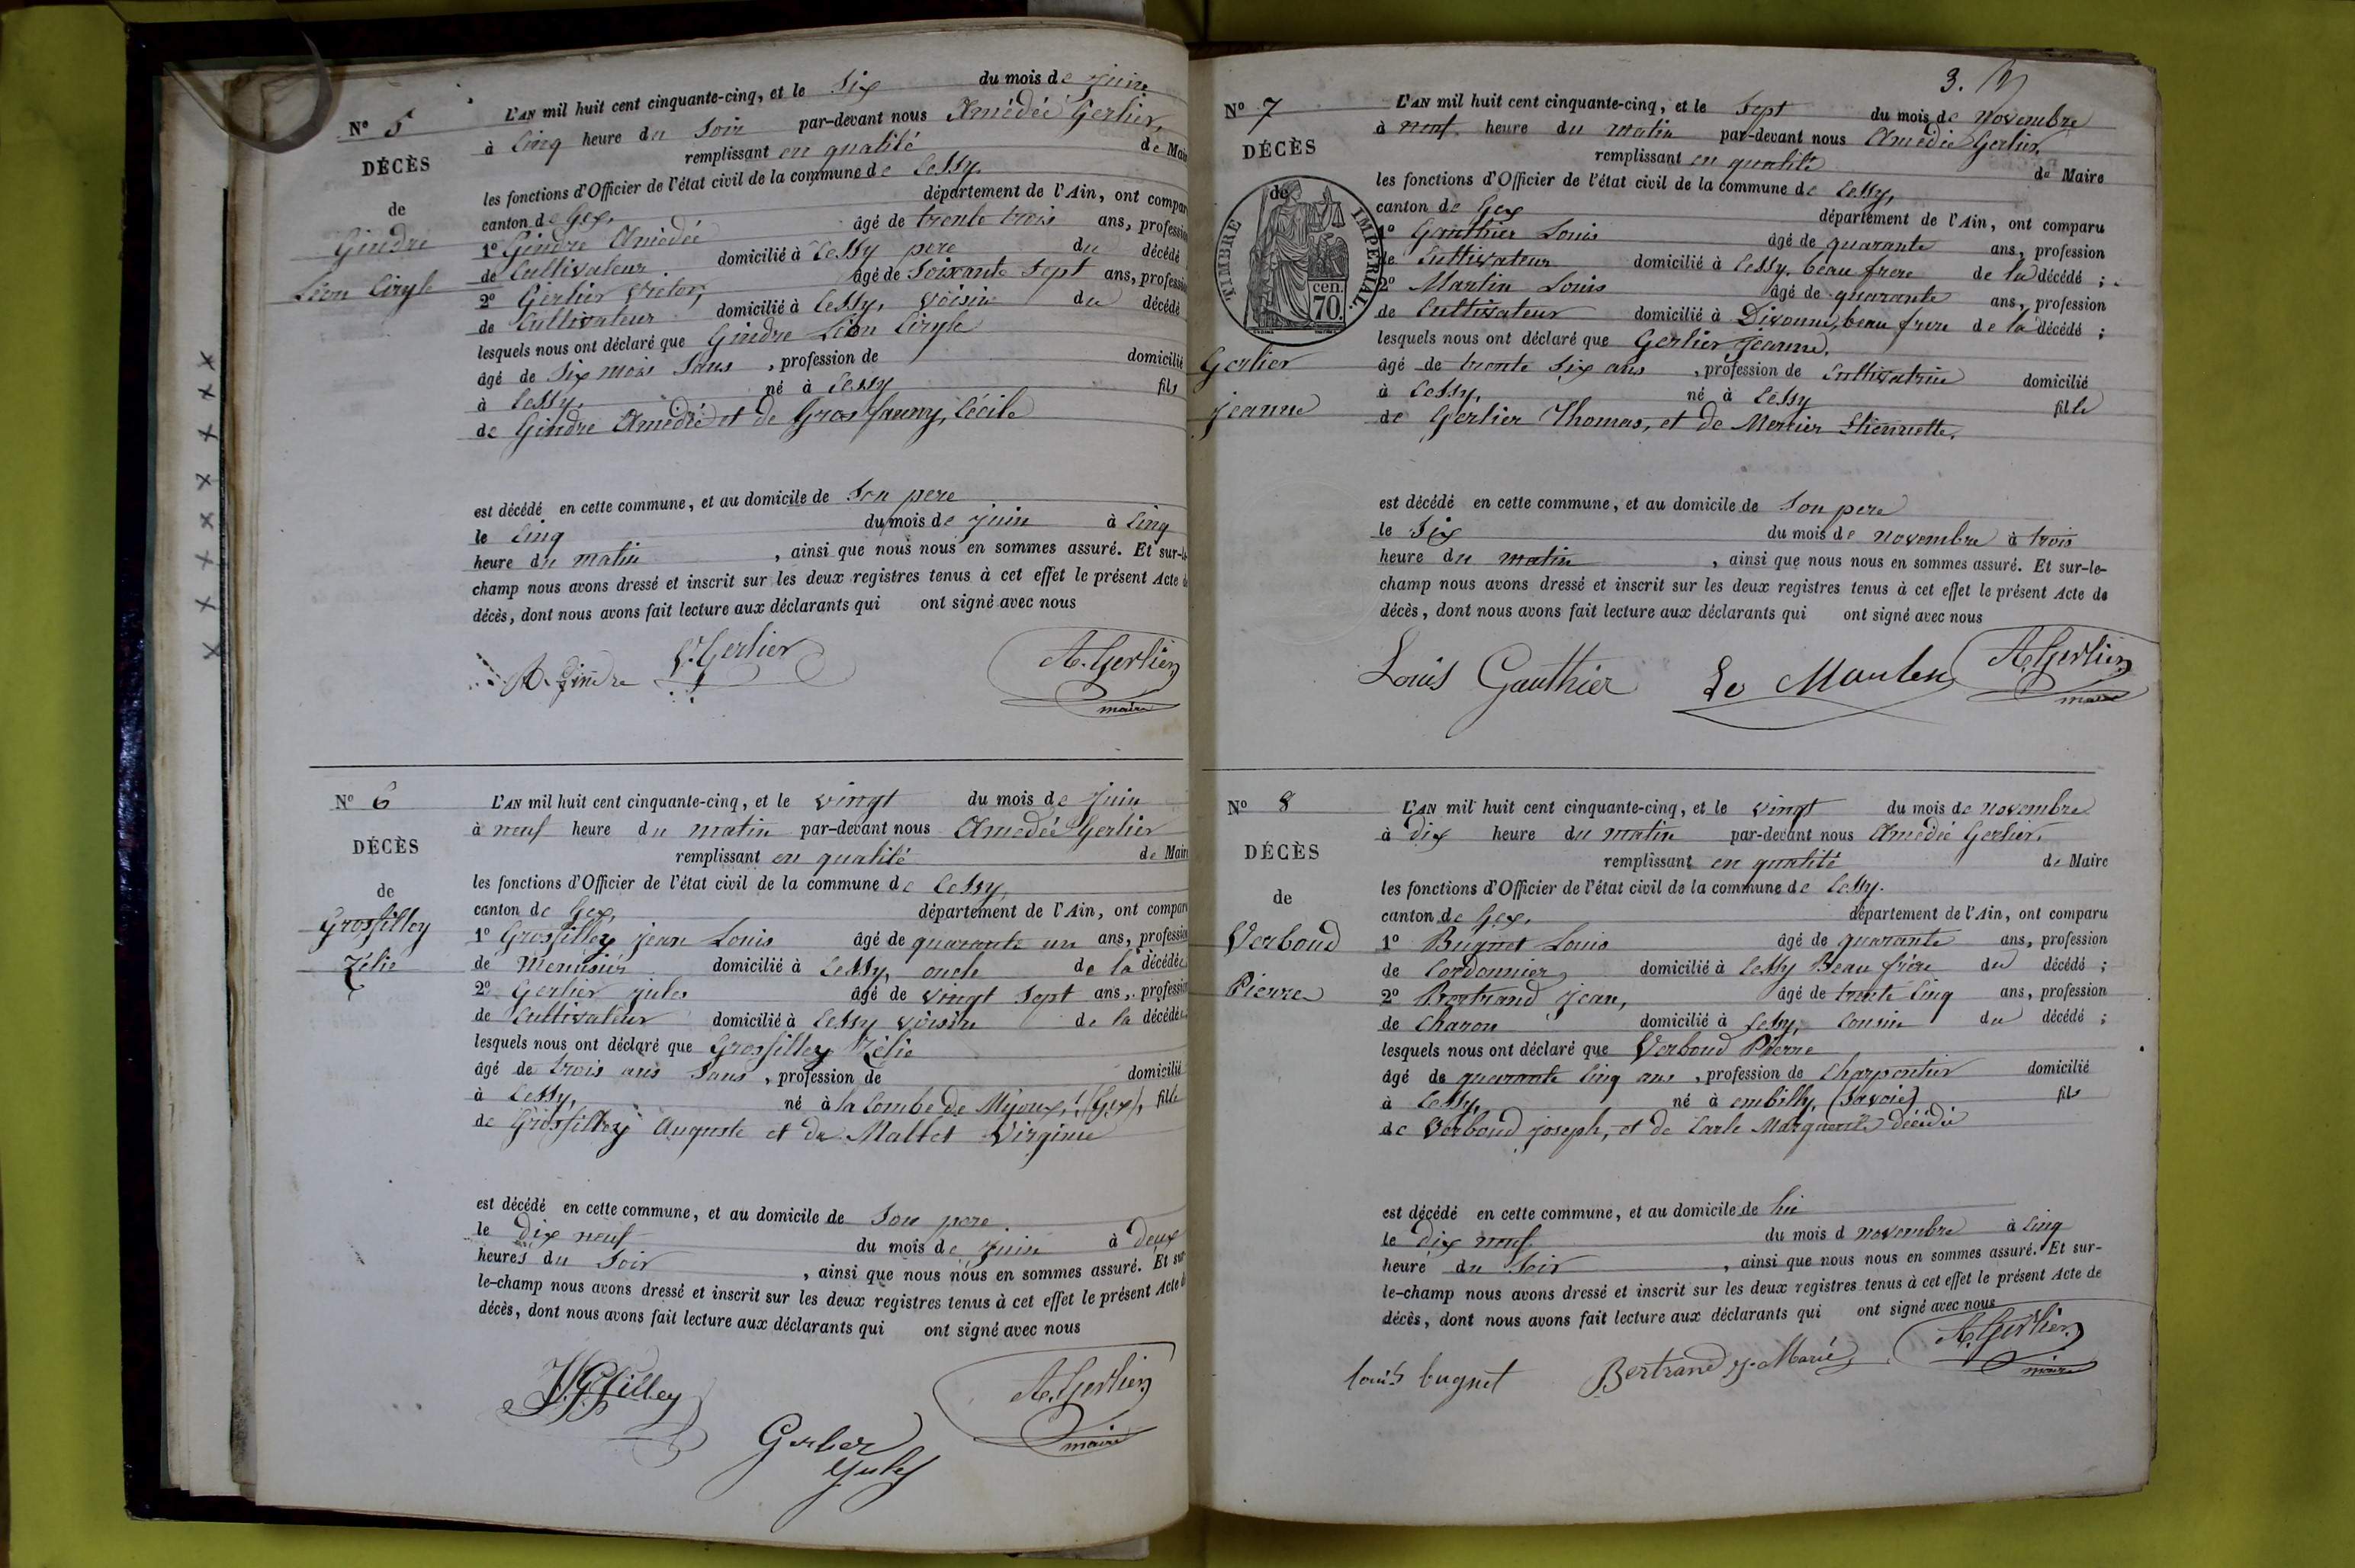 N° 5
DÉCÈS
de
Gindre
Léon Ciryle
L'AN mil huit cent cinquante-cinq, et le Six du mois de juin
à Cinq heure du Soir par-devant nous Amédée Gerlier,
remplissant en qualité de Mai
les fonctions d'Officier de l'état civil de la commune de Cessy,
canton de Gex, département de l'Ain, ont compar
1° Gindre Amédée âgé de trente trois ans, profession
de Cultivateur. domicilié à Cessy pere du décédé
2° Gerlier Victor, âgé de Soixante Sept ans, profession
de Cultivateur domicilié à Cessy, voisin du décédé
lesquels nous ont déclaré que Gindre Léon Ciryle
âgé de Six mois Sans, profession de domicilié
à Cessy, né à Cessy fils
de Gindre Amédée et de Gros Fanny, Cécile
est décédé en cette commune, et au domicile de Son pere
le Cinq du mois de juin à Cinq
heure du matin, ainsi que nous nous en sommes assuré. Et sur-le-
champ nous avons dressé et inscrit sur les deux registres tenus à cet effet le présent Acte de
décès, dont nous avons fait lecture aux déclarants qui ont signé avec nous
A. Gindre V. Gerlier A. Gerlier
maire
N° 6
DÉCÈS
de
Grosfilley
Zélie
L'AN mil huit cent cinquante-cinq, et le vingt du mois de juin
à neuf heure du matin par-devant nous Amédée Gerlier
remplissant en qualité de Mair
les fonctions d'Officier de l'état civil de la commune de Cessy,
canton de Gex, département de l'Ain, ont compar
1° Grosfilley jean Louis âgé de quarante un ans, profession
de Menuisier domicilié à Cessy, oncle de la décédée
2° Gerlier jules âgé de vingt Sept ans, profession
de Cultivateur domicilié à Cessy voisin de la décédée
lesquels nous ont déclaré que Grosfilley Zélie
âgé de trois ans Sans, profession de domicilié
à Cessy, né à la Combe de Mijoux, (Gex), fille
de Grosfilley Auguste et de Maltet Virginie
est décédé en cette commune, et au domicile de Son pere.
le dix neuf du mois de juin à deux
heures du Soir, ainsi que nous nous en sommes assuré. Et sur
le-champ nous avons dressé et inscrit sur les deux registres tenus à cet effet le présent Acte de
décès, dont nous avons fait lecture aux déclarants qui ont signé avec nous
A. Gerlier
maire
Jules
3.
N° 7
DÉCÈS
de
TIMBRE IMPÉRIAL.
70 cen.
Gerlier
jeanne
L'AN mil huit cent cinquante-cinq, et le Sept du mois de novembre
à neuf heure du matin par-devant nous Amédée Gerlier,
remplissant en qualité de Maire
les fonctions d'Officier de l'état civil de la commune de Cessy,
canton de Gex département de l'Ain, ont comparu
1° Gauthier Louis âgé de quarante ans, profession
de Cultivateur domicilié à Cessy, beau frere de la décédé ;
2° Martin Louis âgé de quarante ans, profession
de Cultivateur domicilié à Divonne, beau frere de la décédé ;
lesquels nous ont déclaré que Gerlier jeanne,
âgé de trente Six ans, profession de Cultivatrice domicilié
à Cessy, né à Cessy fille
de Gerlier Thomas, et de Mercier Etiennette.
est décédé en cette commune, et au domicile de Son pere
le Six du mois de novembre à trois
heure du matin, ainsi que nous nous en sommes assuré. Et sur-le-
champ nous avons dressé et inscrit sur les deux registres tenus à cet effet le présent Acte de
décès, dont nous avons fait lecture aux déclarants qui ont signé avec nous
Louis Gauthier A. Gerlier
maire
N° 8
DÉCÈS
de
Verboud
Pierre
L'AN mil huit cent cinquante-cinq, et le vingt du mois de novembre
à dix heure du matin par-devant nous Amédée Gerlier,
remplissant en qualité de Maire
les fonctions d'Officier de l'état civil de la commune de Cessy.
canton de Gex, département de l'Ain, ont comparu
1° Bugnet Louis âgé de quarante ans, profession
de Cordonnier domicilié à Cessy Beau frère du décédé ;
2° Bertrand jean, âgé de trente Cinq ans, profession
de Charon domicilié à Cessy, Cousin du décédé ;
lesquels nous ont déclaré que Verboud Pierre
âgé de quarante Cinq ans, profession de Charpentier domicilié
à Cessy, né à embilly, (Savoie) fils
de Verboud joseph, et de Carle Marguerite décédé
est décédé en cette commune, et au domicile de lui
le dix neuf du mois d novembre à Cinq
heure du Soir, ainsi que nous nous en sommes assuré. Et sur-
le-champ nous avons dressé et inscrit sur les deux registres tenus à cet effet le présent Acte de
décès, dont nous avons fait lecture aux déclarants qui ont signé avec nous
Louis bugnet Bertrand J. Marie A. Gerlier
maire